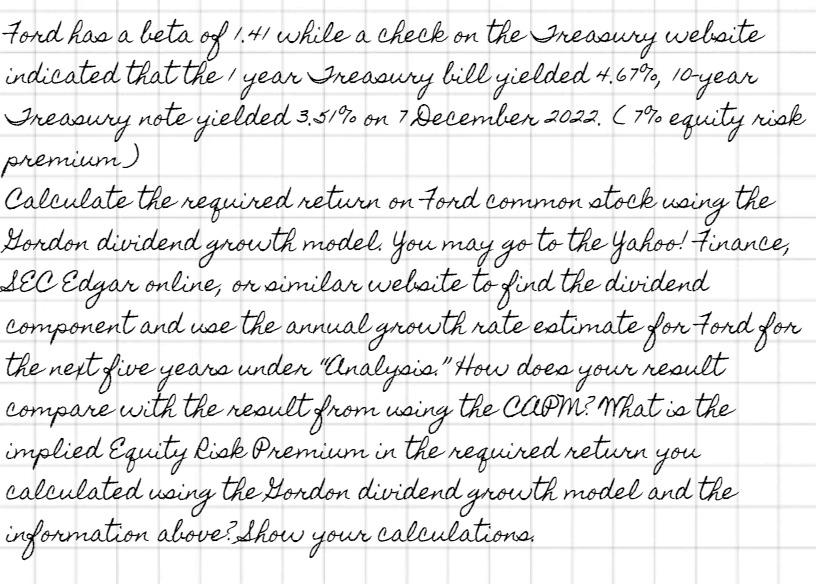 Ford has a beta of 1.41 while a check on the Treasury website
indicated that the 1 year Treasury bill yielded 4.67%, 10-year
Treasury note yielded 3.51% on 7 December 2022. (7% equity risk
premium)
Calculate the required return on Ford common stock using the
Gordon dividend growth model. You may go to the Yahoo! Finance,
SEC Edgar online, or similar website to find the dividend
component and use the annual growth rate estimate for Ford for
the next five years under "Analysis." How does your result
compare with the result from using the CAPM? What is the
implied Equity Risk Premium in the required return you
calculated using the Gordon dividend growth model and the
information above? Show your calculations.